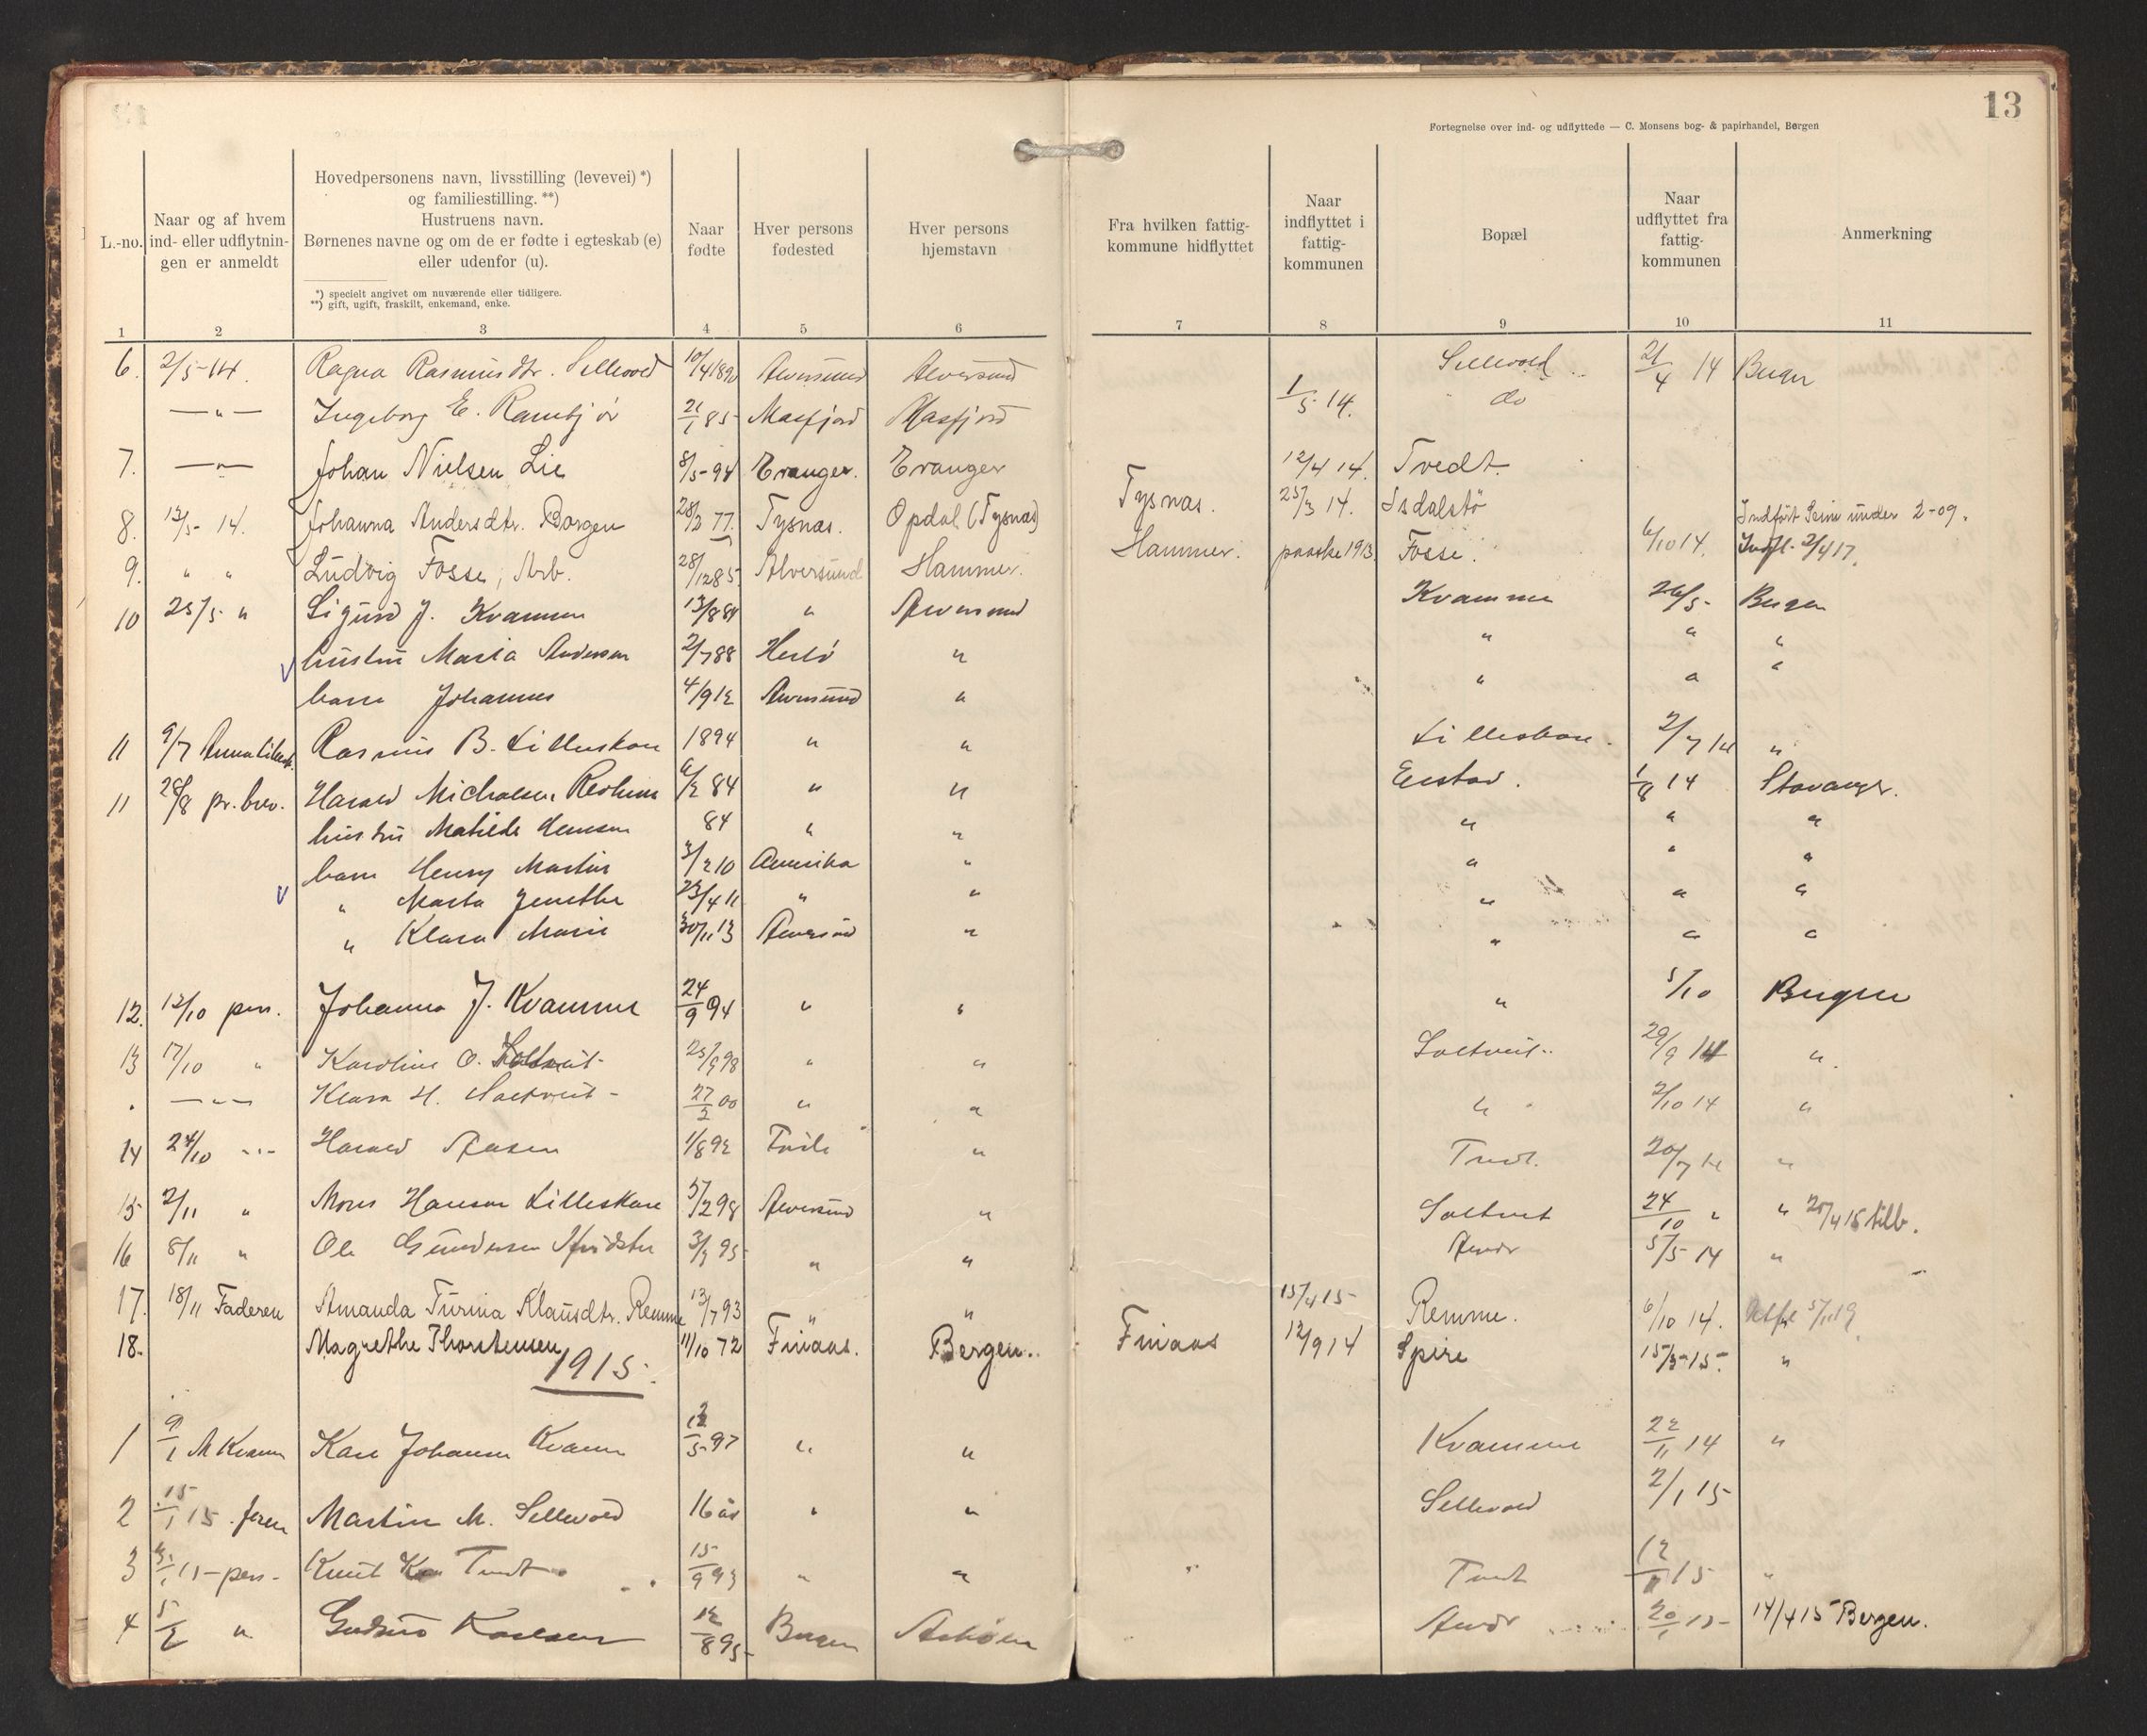 13
Fortegnelse over ind- og udflyttede — C. Monsens bog- & papirhandel, Bergen
L.-no.
Naar og af hvem
ind- eller udflytnin-
gen er anmeldt
Hovedpersonens navn, livsstilling (levevei) *)
og familiestilling. **)
Hustruens navn.
Børnenes navne og om de er fødte i egteskab (e)
eller udenfor (u).
*) specielt angivet om nuværende eller tidligere.
**) gift, ugift, fraskilt, enkemand, enke.
Naar
fødte
Hver persons
fødested
Hver persons
hjemstavn
Fra hvilken fattig-
kommune hidflyttet
Naar
indflyttet i
fattig-
kommunen
Bopæl
Naar
udflyttet fra
fattig-
kommunen
Anmerkning
1 2 3 4 5 6 7 8 9 10 11
6. 2/5-14. Ragna Rasmusdtr. Sellevold 10/4 1890 Alversund Alversund Sellevold 21/4 14 Bergen
—"— Ingeborg E. 21/1 85 Masfjord Masfjord 1/5 14. do
7. —"— Johan Nielsen Lie 8/5-94 Evanger. Evanger 12/4 14. Tvedt.
8. 13/5- 14. Johanna Andersdtr. Borgen 28/3 77. Tysnæs. Opdal (Tysnæs) Tysnæs. 25/3 14. Isdalstö Indført Seim under 2-09.
9. " " Ludvig Fosse, Arb. 28/12 85 Alversund Hammer. Hammer. paaske 1913. Fosse. 6/10 14. Indfl. 2/4 17.
10 25/5 " Sigurd J. Kvamme 13/8 84 " Alversund Kvamme 26/5- Bergen
hustru Maria Andersen 2/7 88 Herlö " " " "
barn Johannes 4/9 12 Alversund " " " "
11 9/7 Rasmus B. Lilleskare 1894 " " Lilleskare. 2/7 14 "
11 28/8 pr. brev. Harald Michalsen 84 " " 1/8 14 Stavanger.
hustru Matilde 84 " " " " "
barn Henry Martin 3/2 10 Amerika " " " "
" Marta 23/4 11 " " " " "
" Klara Marie 30/11 13 Alversund " " " "
12. 12/10 pers. Johanna J. Kvamme 24/9 94 " " " 5/10 Bergen
13 17/10 " Karoline O. Soltveit 25/9 98 " " Soltveit.. 29/9 14 ".
. —"— Klara H. Soltveit - 27/2 00 " " " 2/10 14 "
14 24/10 -"- Harald 1/8 92 " Tvedt. 20/7 14 "
15 2/11 " Mons Hansen Lilleskare 5/2 98 Alversund " Soltveit 24/10 " " 20/4 15 tilb.
16 8/11 " Ole Gundersen 3/3 95 " " 5/5 14 "
17. 18/11 Faderen Amanda Turina Klausdtr. Remme 13/7 93 " " 15/4 15 Remme. 6/10 14.
18. Magrethe Thorstensen 11/10 72 Finaas. Bergen.. Finaas 12/9 14 Spire 15/3-15. "
1915.
1 9/1 M Kvamme Kare Johannes Kvamme 97 " " Kvamme 22/11 14 "
2 15/1 15. Martin M. Sellevold 16 år " " Sellevold 2/1 15
3 pers. Knut Tvedt 15/9 93 " " Tvedt 15 "
4 5/2 " Gudrun Karlsen 12/8 95 Bergen Askøen 20/1 15 14/4 15 Bergen.